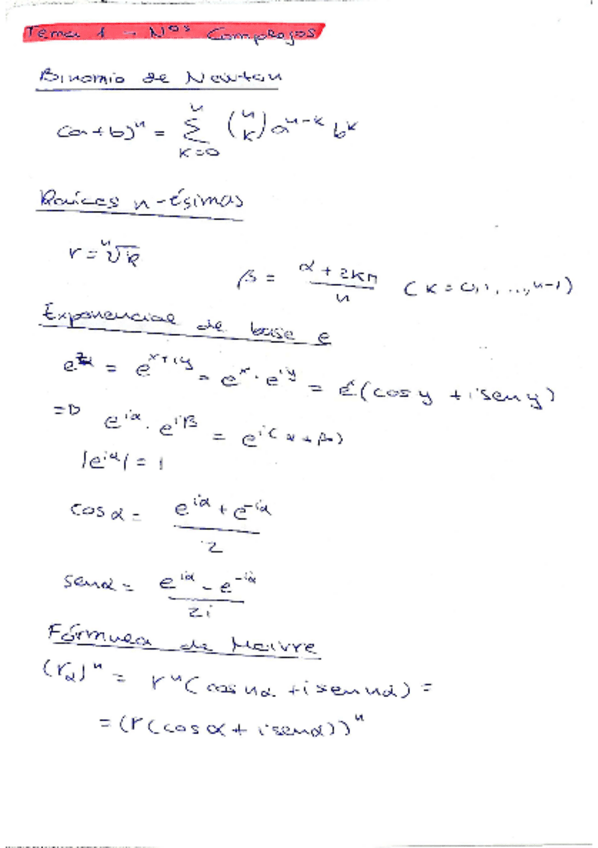 Tema 1 - Nos Complejos
Binomio de Newton
(a+b)^n = Σ_{k=0}^{n} (n k) a^{n-k} b^k
Raíces n-ésimas
r = ⁿ√R
β = (α + 2kπ)/n (k = 0, 1, ..., n-1)
Exponencial de base e
e^z = e^{x+iy} = e^x · e^{iy} = e^x (cos y + i sen y)
=D e^{iα} · e^{iβ} = e^{i(α+β)}
|e^{iα}| = 1
cos α = (e^{iα} + e^{-iα})/2
sen α = (e^{iα} - e^{-iα})/2i
Fórmula de Moivre
(r_α)^n = r^n (cos nα + i sen nα) =
= (r (cos α + i sen α))^n